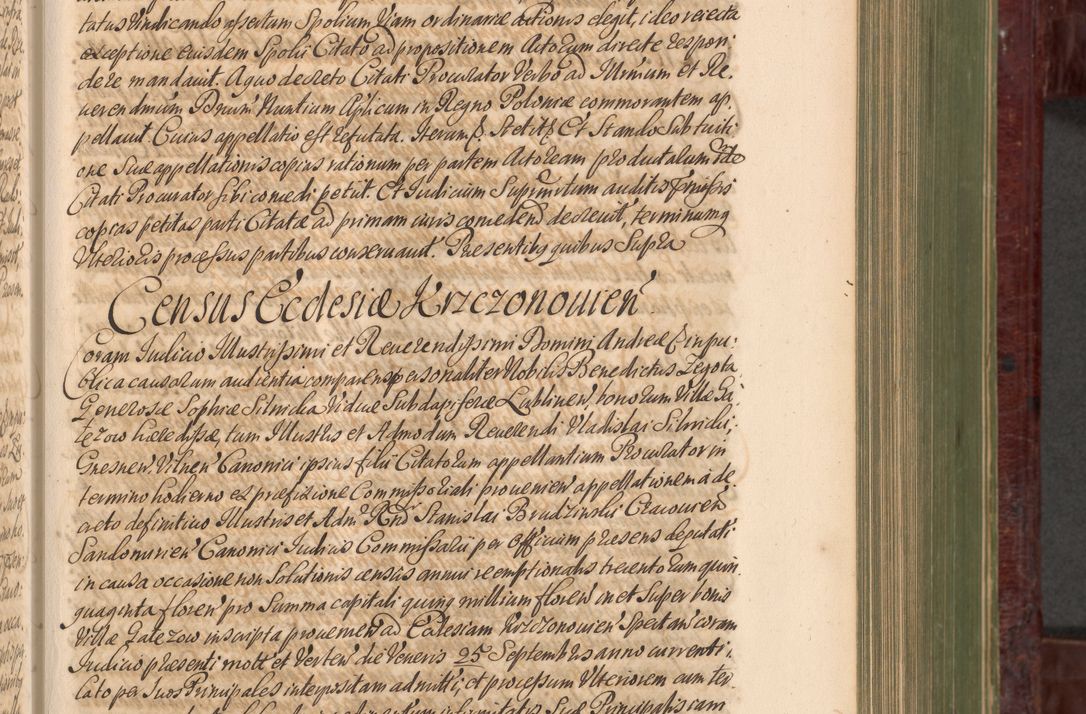 tatus Vindicando assertum Spolium Viam ordinariæ actionis elegit, ideo reiecta
exceptione eiusdem Spolii Citato ad propositionem Actorum directe respon-
dere mandauit. A quo decreto Citati Procurator Verbo ad Illrmium et Re-
uerendmium Dnum Nuntium Aplicum in Regno Poloniæ commorantem ap-
pellauit. Cuius appellatio est refutata. Iterum Stetit Et Stando Sub tuiti-
one Suæ appellationis copias rationum per partem Actoream productarum
Citati Procurator sibi concedi petiit. Et Iudicium Supmtum auditis
copias petitas parti Citatæ ad primam iuris concedend decreuit, terminumq
Vlterioris processus partibus conseruauit. Presentibq quibus Supra
Census Ecclesiæ Krzczonouien
Coram Iudicio Illustrissimi et Reuerendissimi Domini Andreæ in pu-
blica causarum audientia comparens personaliter Nobilis Benedictus Zegota
Generosæ Sophiæ Silnicka Viduæ Subdapiferæ Lublinen, bonorum Villæ Ga-
łezow hæredissæ, tum Illustris et Admodum Reuerendi Vladislai Silnicki,
Gnesnen, Vilnen Canonici ipsius filii Citatorum appellantium Procurator in
termino hodierno ex præfixione Commissoriali prouenien appellationem à de-
creto definitiuo Illustris et Admᵒ Rndi Stanislai Brudzinski Cracouien
Sandomirien Canonici Iudicis Commissarii per officium præsens deputati
in causa occasione non Solutionis census annui reemptionalis trecentorum quin-
quaginta floren pro Summa capitali quinq millium floren in et Super bonis
Villæ Gałezow inscripta prouenien ad Ecclesiam Krzczonouien Spectan coram
Iudicio præsenti mott et Verten die Veneris 25 Septembris anno currenti,
Cato per Suos Principales interpositam admitti, et processum Vlteriorem cum ter-